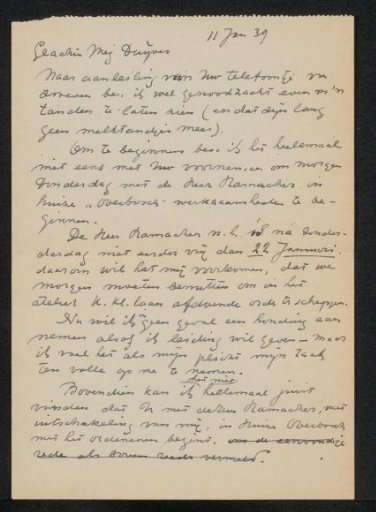 11 Jan 39
Geachte Mej Duyves
Naar aanleiding van Uw telefoontje van
ben ik wel genoodzaakt even m'n
tanden te laten zien (en dat zijn lang
geen melktandjes meer).
Om te beginnen ben ik het heelemaal
niet eens met Uw voornemen om morgen
Donderdag met de Heer Ramacher in
huize "Overbosch" werkzaamheden te be-
ginnen.
De Heer Ramacher n.l. is na Donder-
derdag niet eerder vrij dan 22 Januari
daarom wil het mij voorkomen, dat we
morgen moeten benutten om in het
atelier K. Kl. laan afdoende orde te scheppen.
Nu wil ik geen geval een houding aan
nemen alsof ik leiding wil geven – maar
ik voel het als mijn plicht mijn taak
ten volle op me te nemen.
het niet
Bovendien kan ik heelemaal juist
vinden dat U met de Heer Ramacher, met
uitschakeling van mij, in Huize Overbosch
met het ordenen begint. om de eenvoudige
rede als boven reeds vermeld.